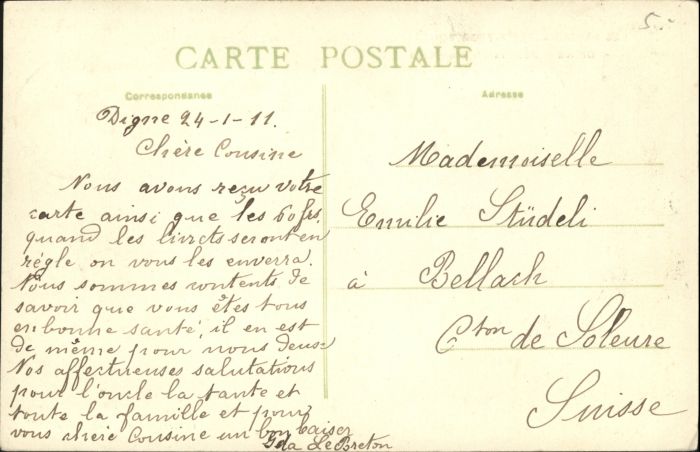 5.-
CARTE POSTALE
Correspondance
Adresse
Digne 24-1-11.
Chère Cousine
Nous avons reçu votre
carte ainsi que les 60 frs.
quand les livrets seront en
règle on vous les enverra.
Nous sommes contents de
savoir que vous êtes tous
en bonne santé, il en est
de même pour nous deux
Nos affectueuses salutations
pour l'oncle la tante et
toute la famille et pour
vous chère Cousine un bon baiser
Ida Le Breton
Mademoiselle
Emilie Stüdeli
à Bellach
Cton de Soleure
Suisse